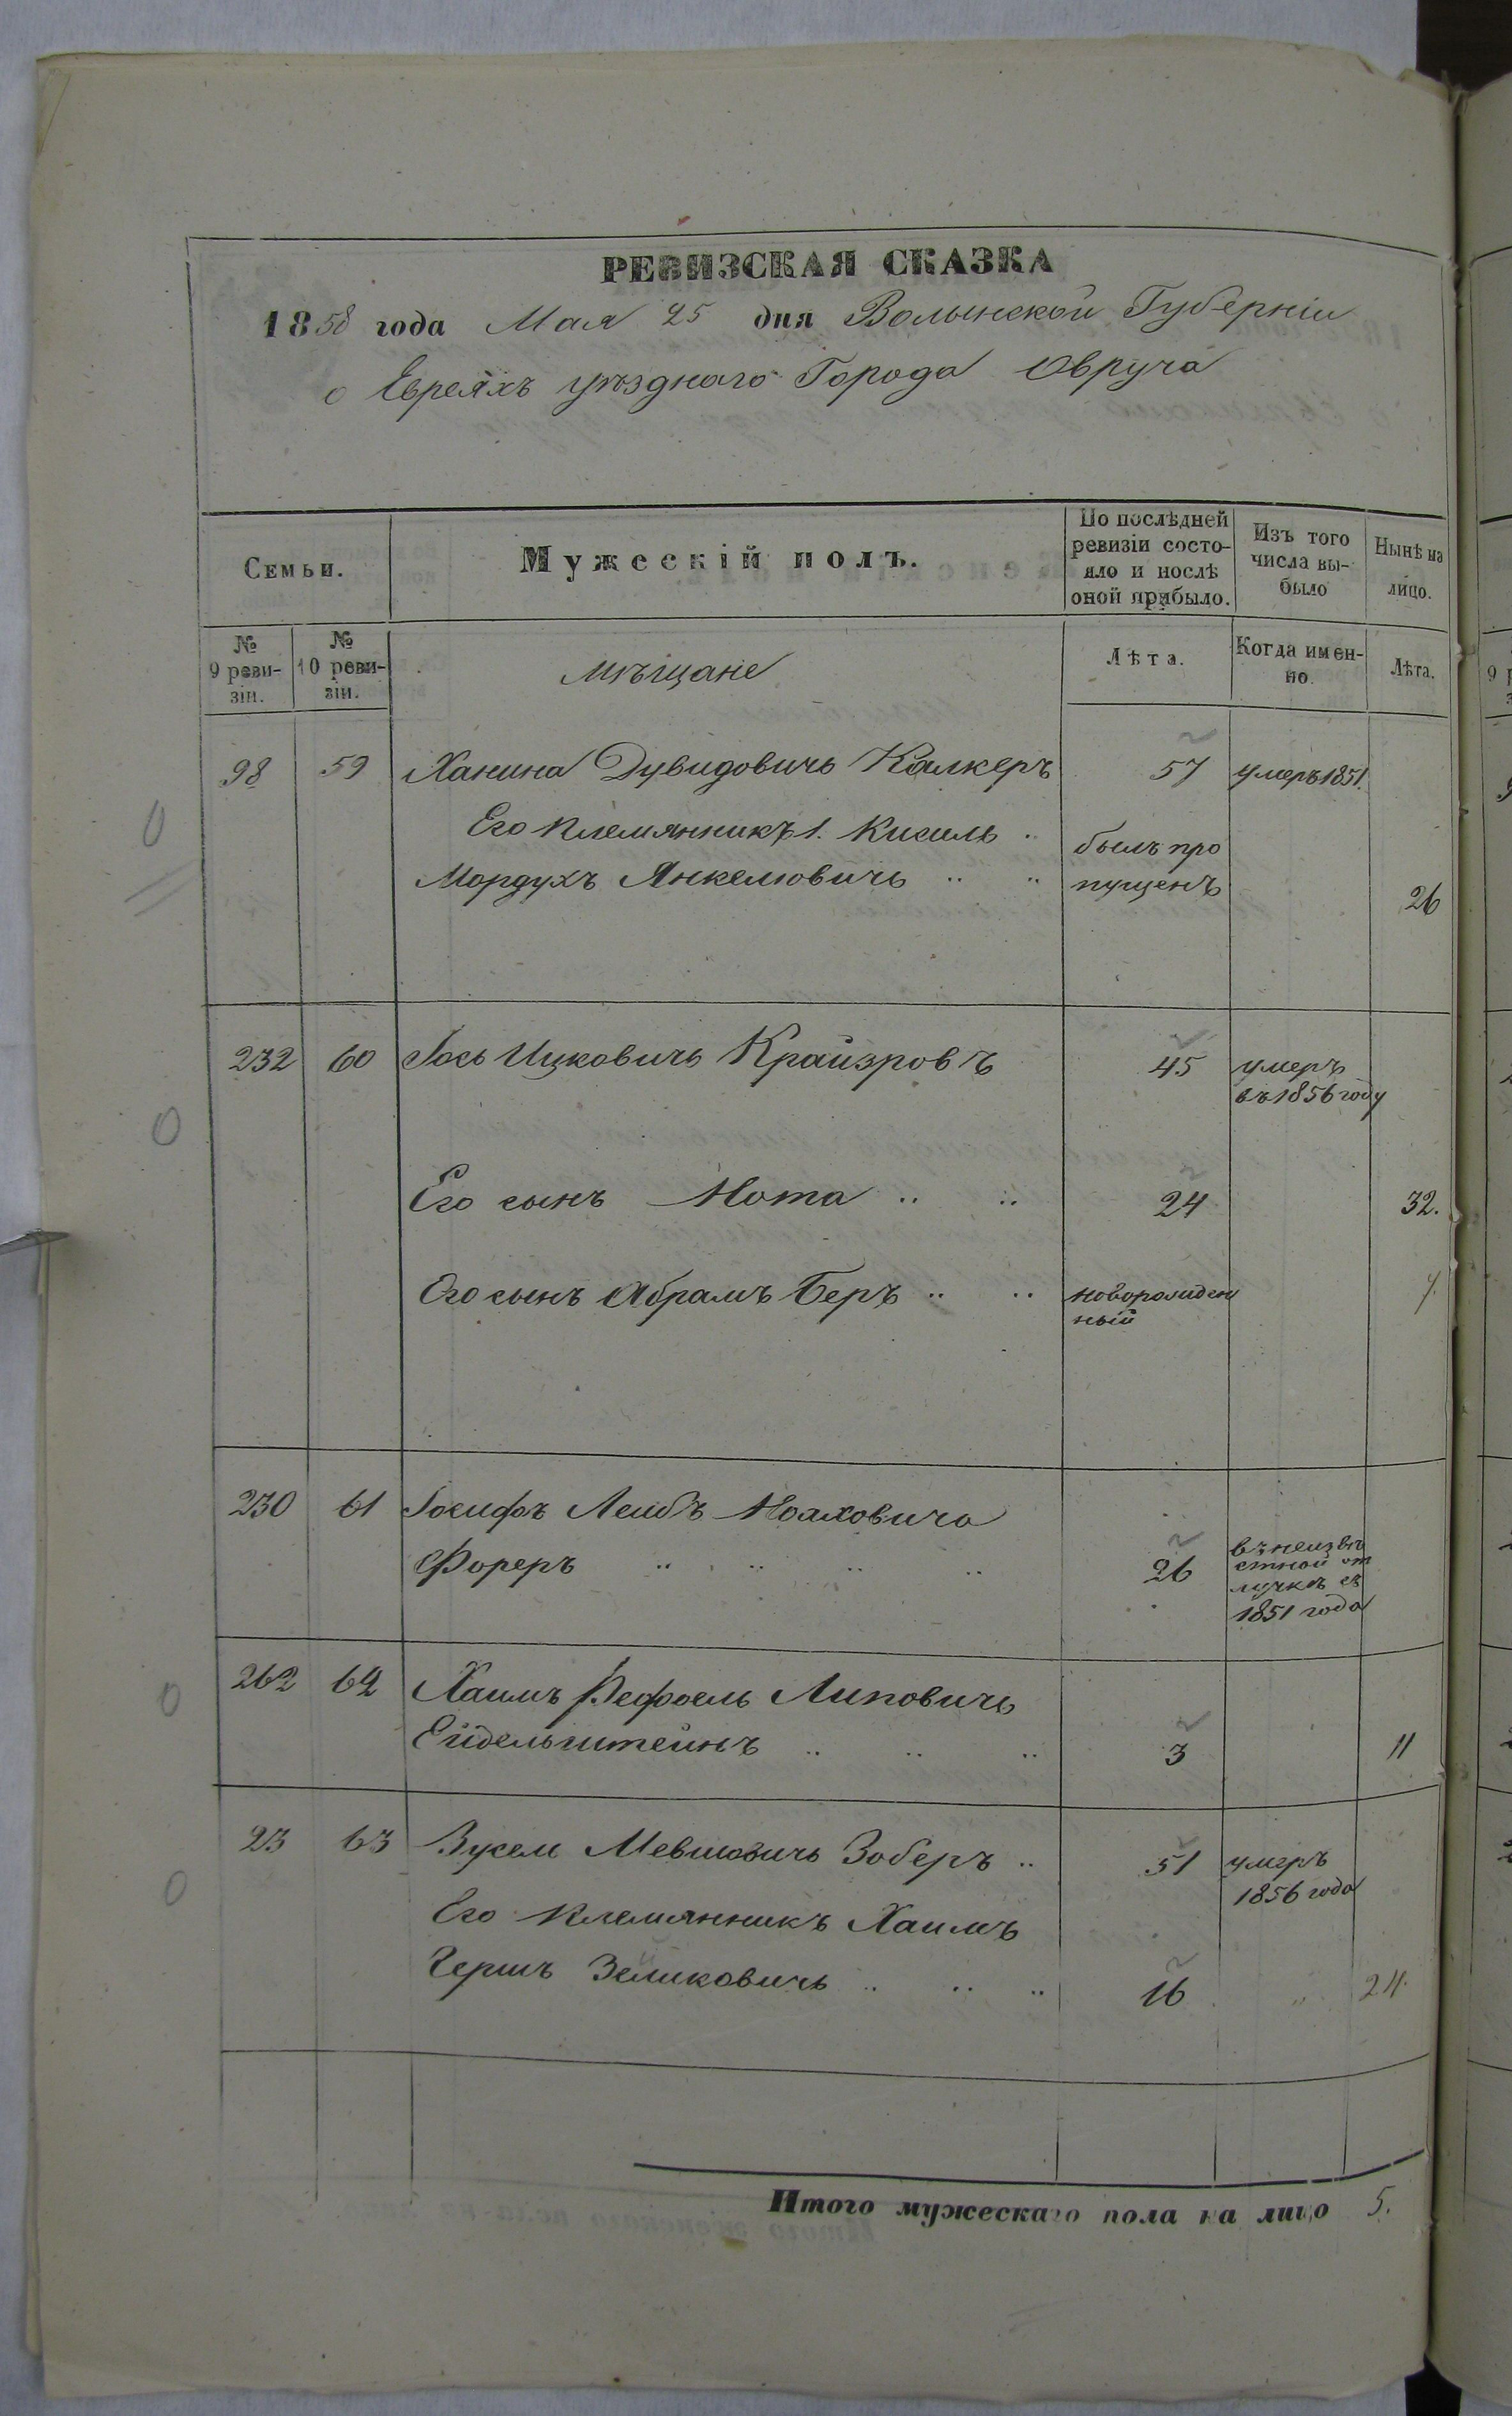 РЕВИЗСКАЯ СКАЗКА
1858 года Мая 25 дня Волынской Губерніи
о Евреяхъ уѣзднаго Города Овруча
Семьи.
Мужескій полъ.
По послѣдней ревизіи состояло и послѣ оной прибыло.
Изъ того числа выбыло
Нынѣ на лицо.
№ 9 ревизіи.
№ 10 ревизіи.
мѣщане
Лѣта.
Когда именно.
Лѣта.
98 59 Ханина Дувидовичъ Калкеръ 57 умеръ 1851.
Его племянникъ 1. Кисиль былъ про
Мордухъ Янкелювичъ пущенъ 26
232 60 Іось Ицковичъ Крайзровъ 45 умеръ
въ 1856 году
Его сынъ Нота 24 32.
Его сынъ Абрамъ Беръ новорожден
ный 7.
230 61 Іосифъ Лейбъ Нохховичъ
Фореръ 26 въ неизвѣ
стной от
лучкѣ съ
1851 года
262 62 Хаимъ Рефоель Липовичъ
Ейдельштейнъ 3 11
23 63 Зусель Мевшовичъ Зоберъ 51 умеръ
1856 года
Его племянникъ Хаимъ
Гершъ Зеликовичъ 16 24.
Итого мужескаго пола на лицо 5.